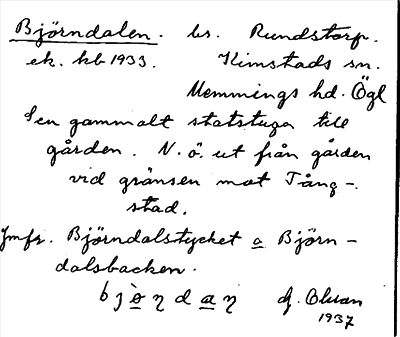 Björndalen. bs. Rundstorp.
ek. kb 1933. Kimstads sn.
Memmings hd. Ögl
I en gammalt statstuga till
gården. N. ö. ut från gården
vid gränsen mot Tång-
stad.
Jmfr. Björndalstycket o Björn-
dalsbacken.
Olsson
1937